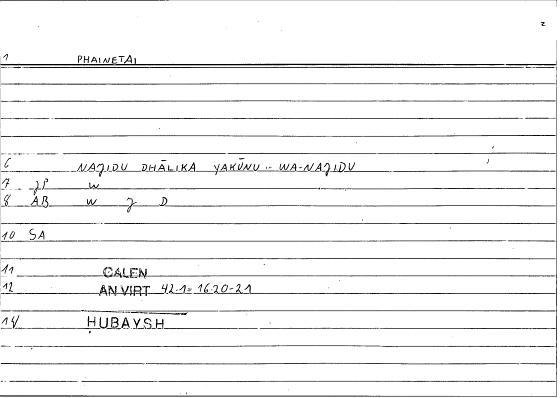 2
1 PHAINETAI
6 NAJIDU DHĀLIKA YAKŪNU .. WA-NAJIDU
7 JP W
8 AB W J D
10 SA
11 GALEN
12 AN VIRT 42.1 = 16.20-21
14 HUBAYSH